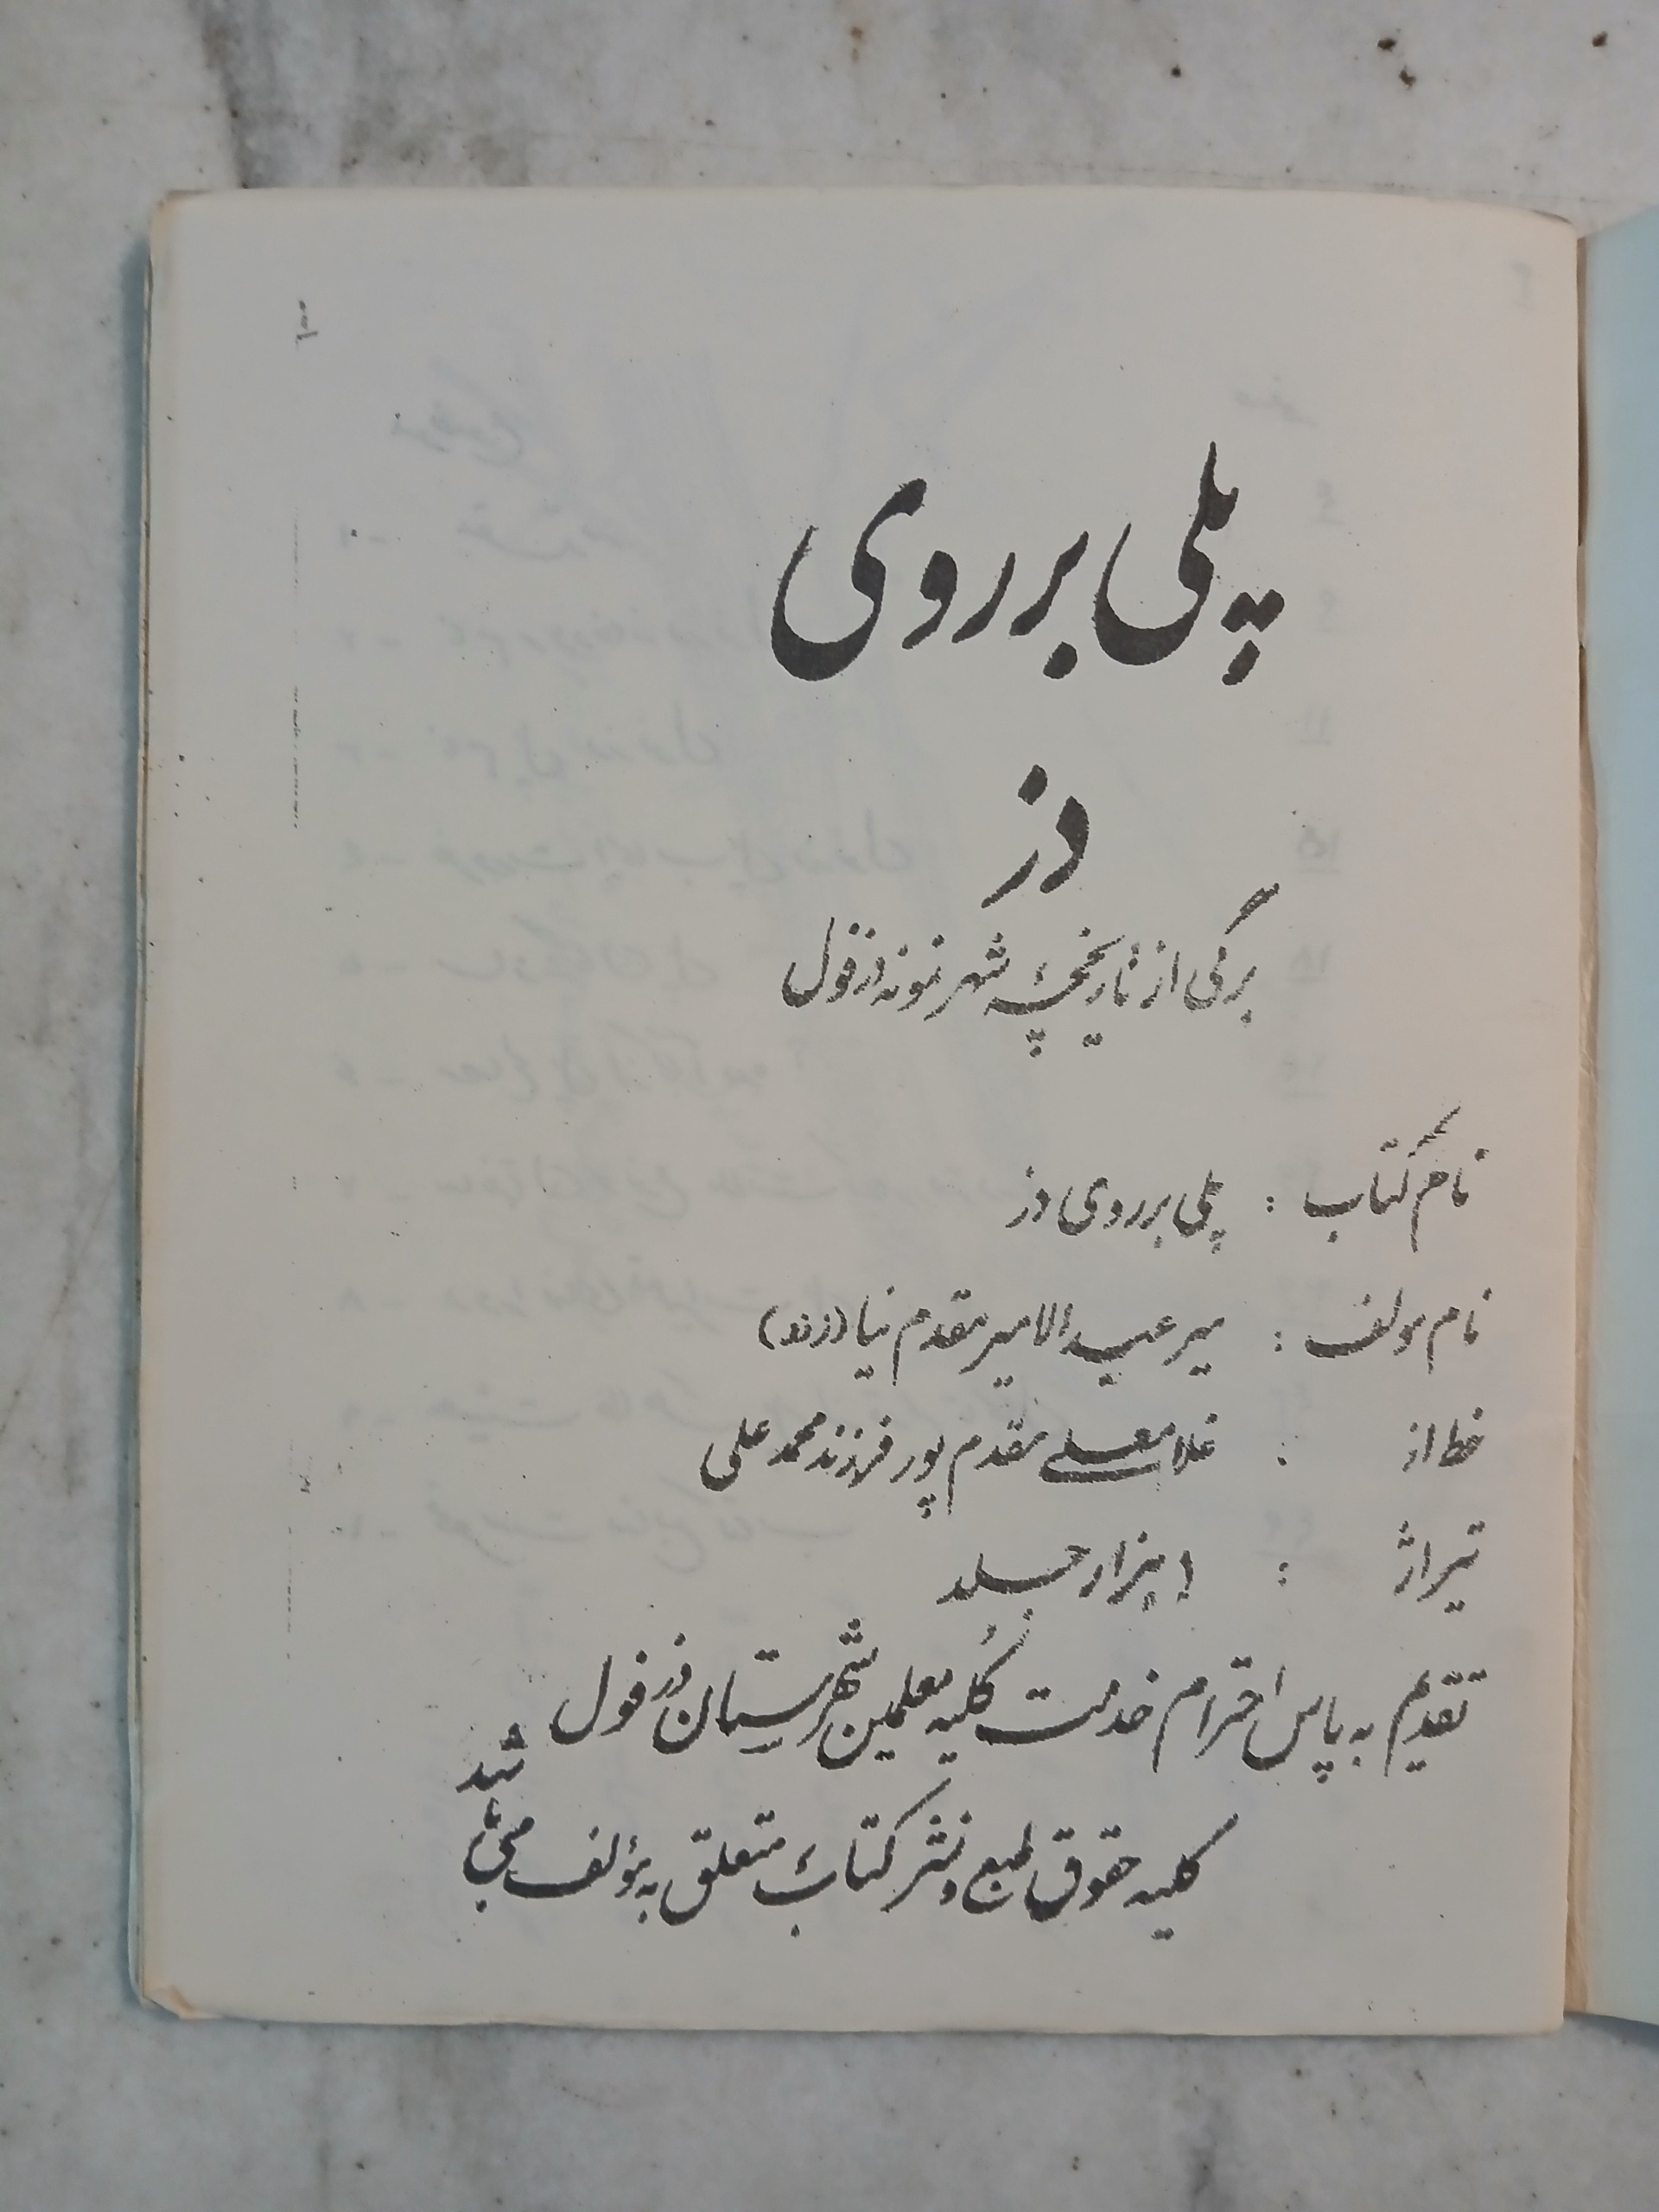 پلی بر روی
دز
برگی از تاریخچهٔ شهر نمونه دزفول
نام کتاب : پلی بر روی دز
نام مولف : میر عبدالامیر مقدم نیا (رند)
خط از : غلامعلی مقدم پور فرزند محمد علی
تیراژ : ۱ هزار جلد
تقدیم به پاس احترام خدمت کلیه معلمین شهرستان دزفول
کلیه حقوق طبع و نشر کتاب متعلق به مؤلف می باشد